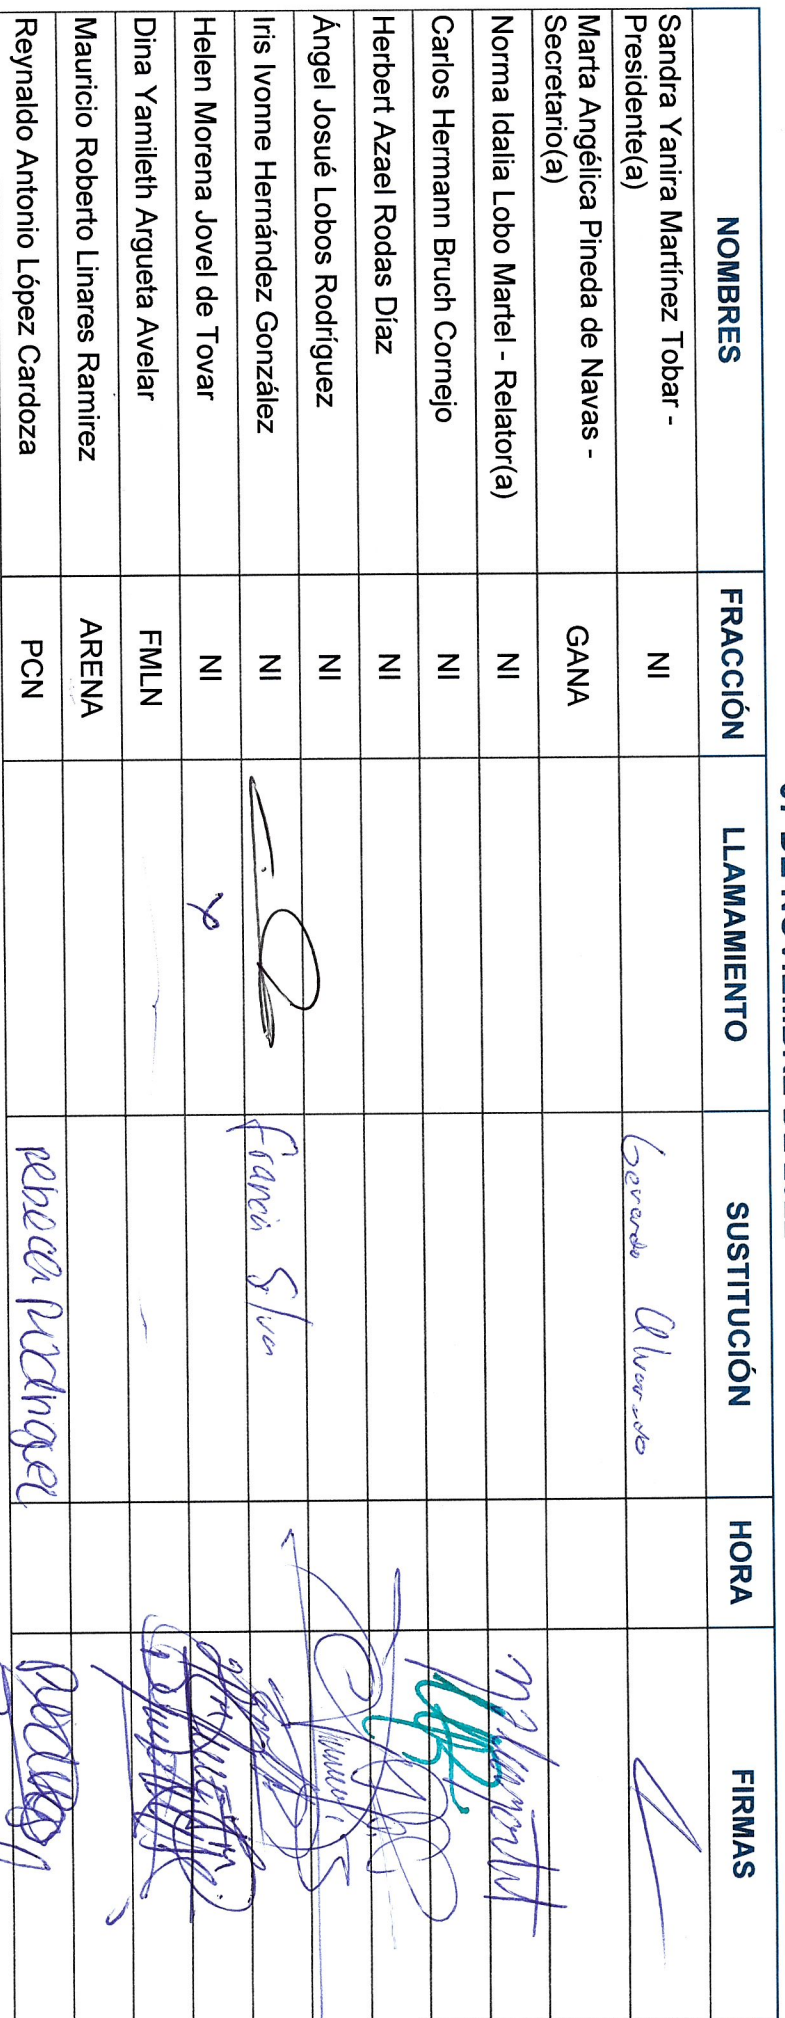 NOMBRES FRACCIÓN LLAMAMIENTO SUSTITUCIÓN HORA FIRMAS
Sandra Yanira Martínez Tobar -
Presidente(a) NI Gerardo Alvarado
Marta Angélica Pineda de Navas -
Secretario(a) GANA
Norma Idalia Lobo Martel - Relator(a) NI
Carlos Hermann Bruch Cornejo NI
Herbert Azael Rodas Díaz NI
Ángel Josué Lobos Rodríguez NI
Iris Ivonne Hernández González NI Francis Silva
Helen Morena Jovel de Tovar NI
Dina Yamileth Argueta Avelar FMLN
Mauricio Roberto Linares Ramirez ARENA
Reynaldo Antonio López Cardoza PCN Rebeca Rodríguez